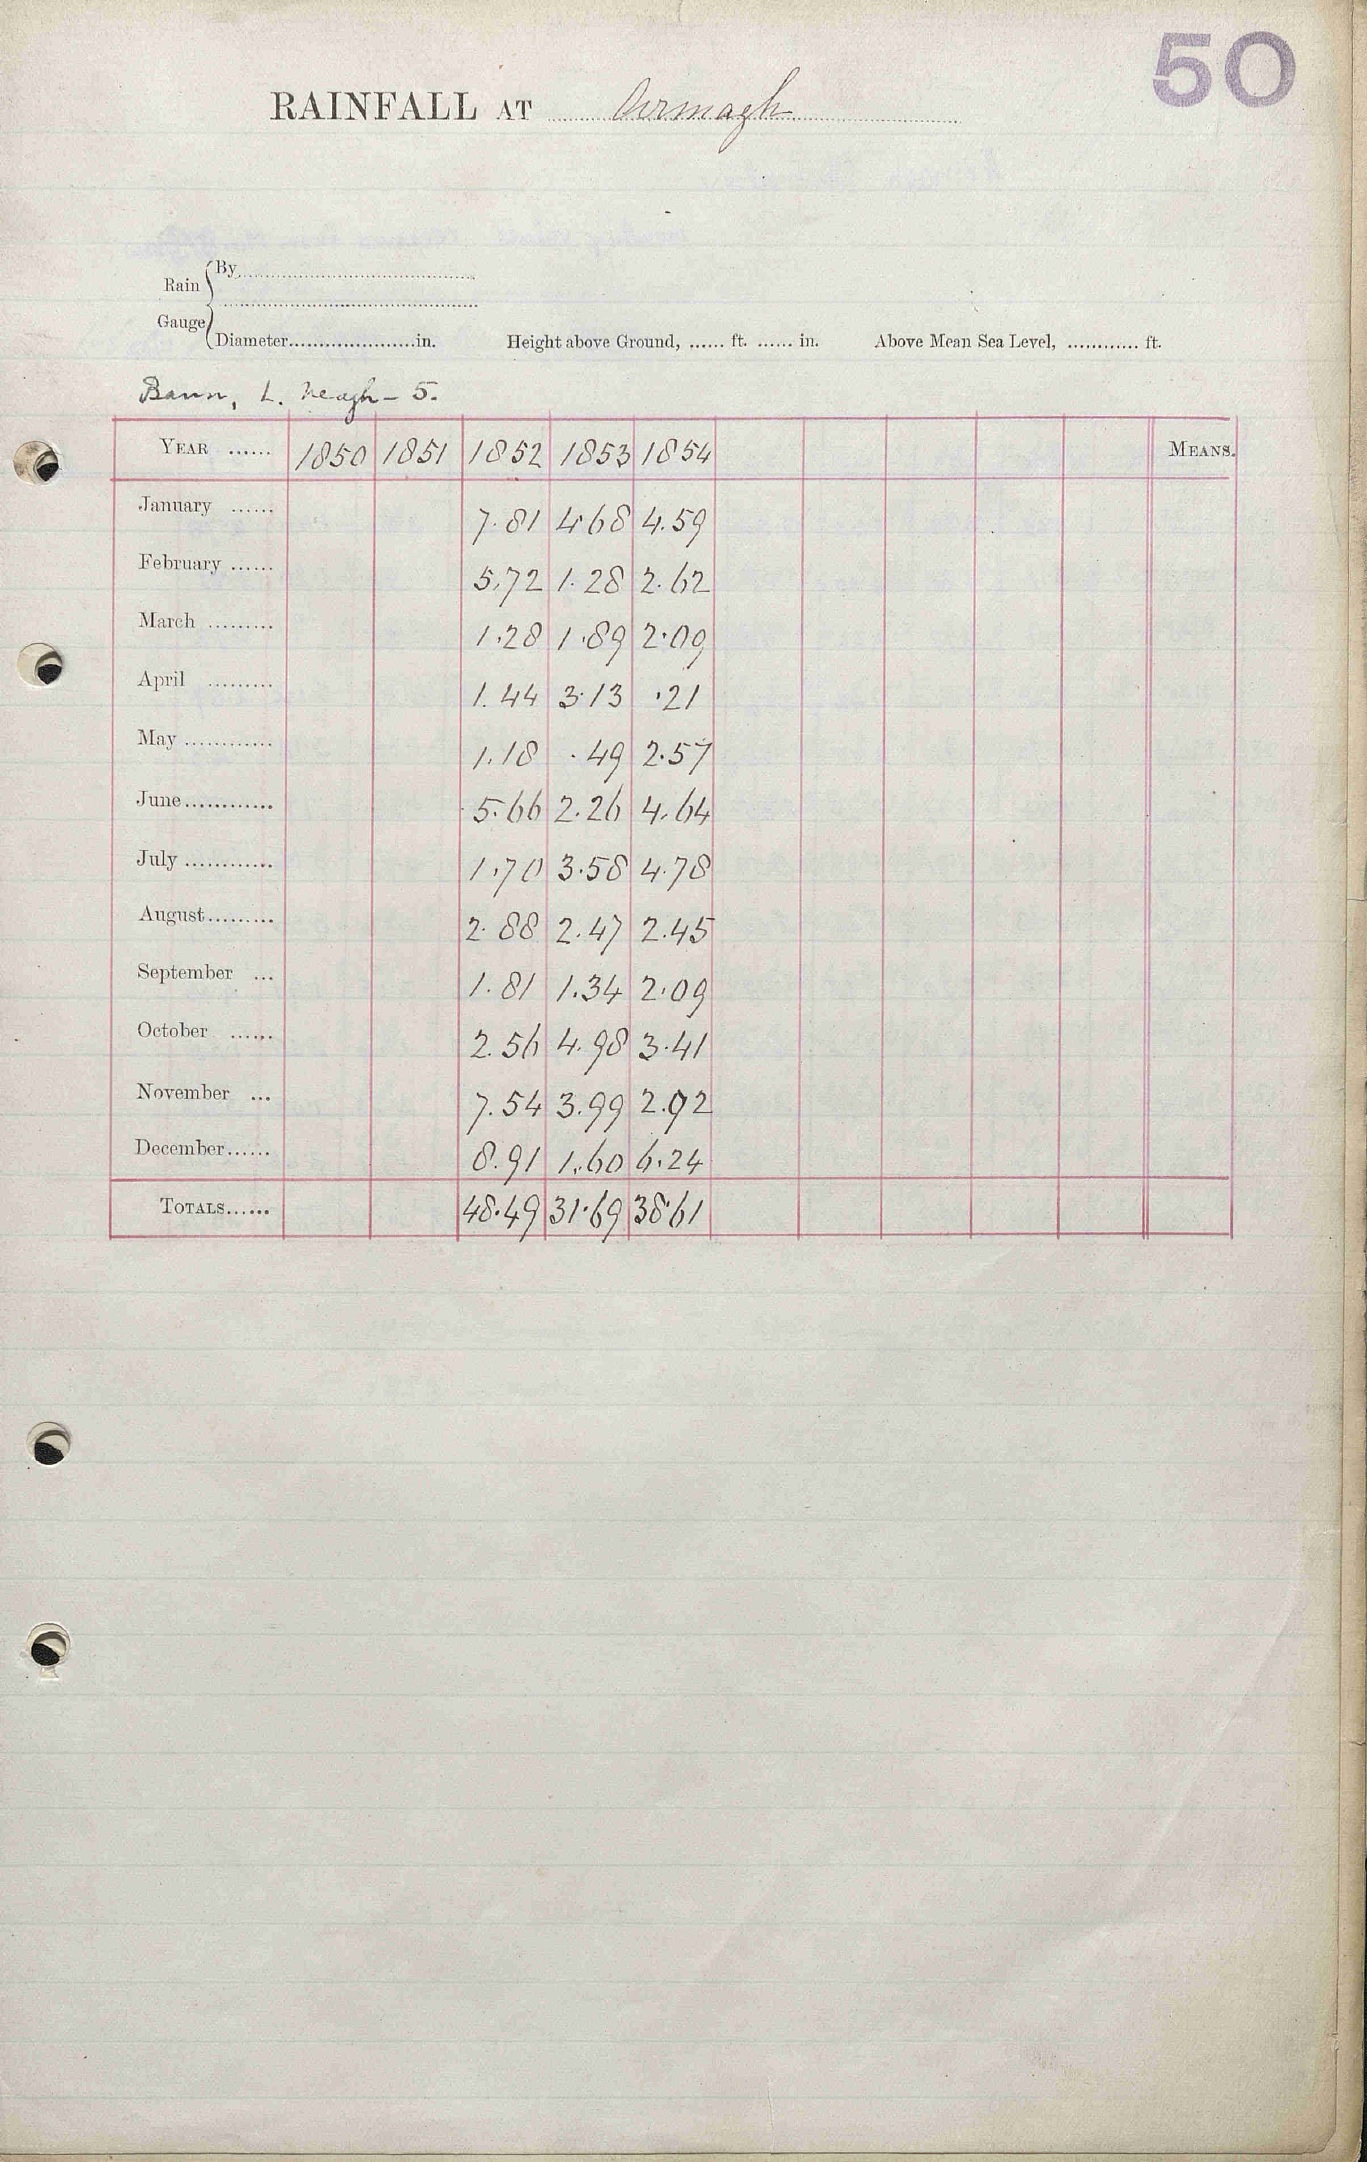 50
RAINFALL AT Armagh
Rain Gauge
By
Diameter.....................in. Height above Ground, ...... ft. ...... in. Above Mean Sea Level, ............ ft.
Bann, L. Neagh - 5.
YEAR ...... 1850 1851 1852 1853 1854 MEANS.
January ...... 7.81 4.68 4.59
February ...... 5.72 1.28 2.62
March ......... 1.28 1.89 2.09
April ......... 1.44 3.13 .21
May ............ 1.18 .49 2.57
June............ 5.66 2.26 4.64
July ............ 1.70 3.58 4.78
August......... 2.88 2.47 2.45
September ... 1.81 1.34 2.09
October ...... 2.56 4.98 3.41
November ... 7.54 3.99 2.92
December...... 8.91 1.60 6.24
TOTALS...... 48.49 31.69 38.61